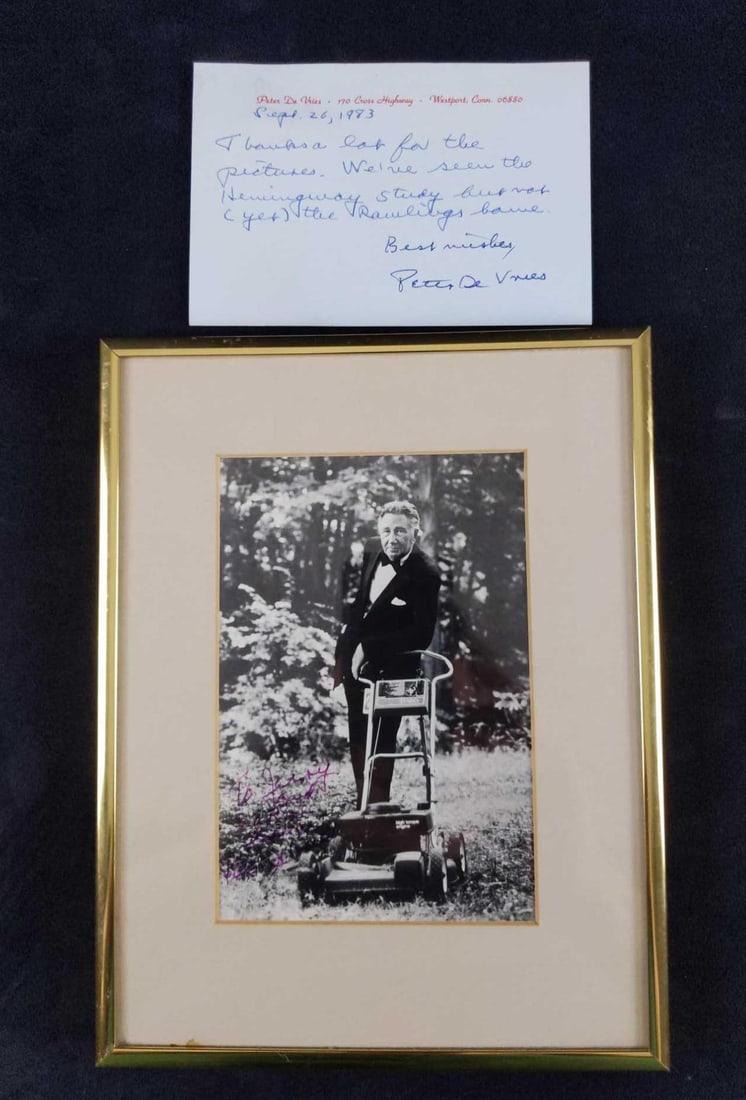 Peter De Vries · 170 Cross Highway · Westport, Conn. 06880
Sept. 26, 1983
Thanks a lot for the
pictures. We've seen the
Hemingway study but not
(yet) the Rawlings home.
Best wishes,
Peter De Vries
To Jerry
high torque
engine